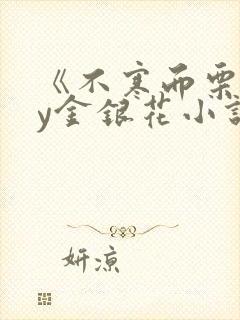 《不寒而栗
y金银花小说
妍凉